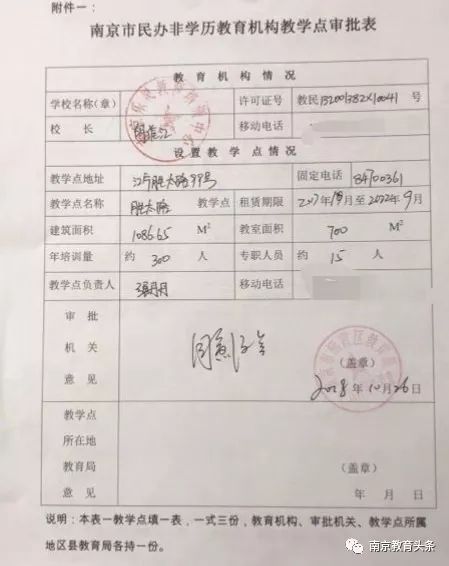 附件一：
南京市民办非学历教育机构教学点审批表
教育机构情况
学校名称(章) 许可证号 教民 号
校长 移动电话
设置教学点情况
教学点地址 胜太路99号 固定电话 84700361
教学点名称 胜太路 教学点 租赁期限 2017年10月至2022年9月
建筑面积 1086.65 M² 教室面积 700 M²
年培训量 约 300 人 专职人员 约 15 人
教学点负责人 张月月 移动电话
审批
机关 同意设立
意见 (盖章)
2018年10月26日
教学点
所在地
教育局 (盖章)
意见 年 月 日
说明：本表一教学点填一表，一式三份，教育机构、审批机关、教学点所属
地区县教育局各持一份。
南京教育头条